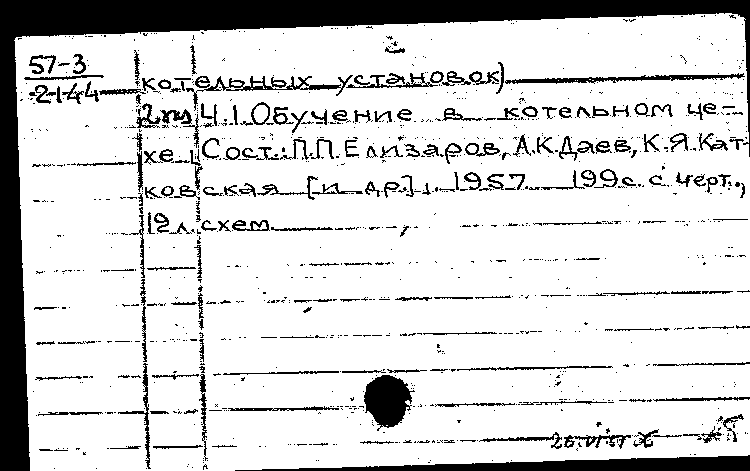 57-3
2144
котельных установок)
2 экз Ч.1. Обучение в котельном це-
хе. Сост.: П.П. Елизаров, А.К. Даев, К.Я. Кат-
ковская [и др.]. 1957 199 с. с черт.,
12 л. схем.